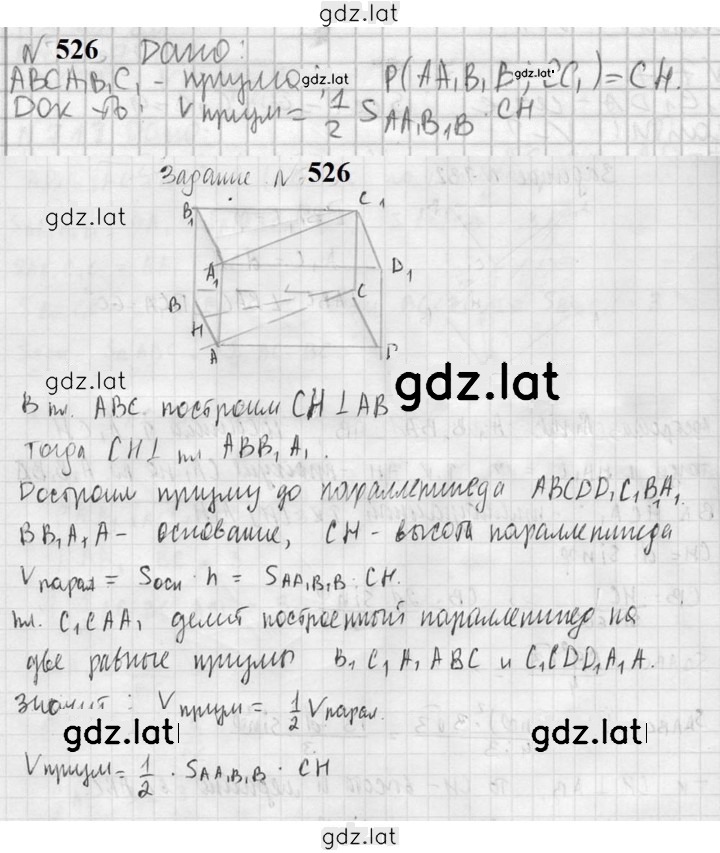 gdz.lat
N 526 Дано:
ABCA₁B₁C₁ - призма; gdz.lat P(AA₁B₁B; gdz.lat CC₁) = CH.
Док-ть: Vпризм = 1/2 S AA₁B₁B · CH
Задание N 526
gdz.lat
B₁ C₁
A₁ D₁
B C
H
A D
gdz.lat
gdz.lat
В пл. ABC построим CH ⊥ AB
тогда CH ⊥ пл. ABB₁A₁.
Достроим призму до параллепипеда ABCDD₁C₁B₁A₁.
BB₁A₁A - основание, CH - высота параллепипеда
Vпарал = Sосн · h = S AA₁B₁B · CH.
пл. C₁CAA₁ делит построенный параллепипед на
две равные призмы B₁C₁A₁ABC и C₁CDD₁A₁A.
Значит: Vпризм = 1/2 Vпарал.
gdz.lat gdz.lat
Vпризм = 1/2 · S AA₁B₁B · CH
gdz.lat